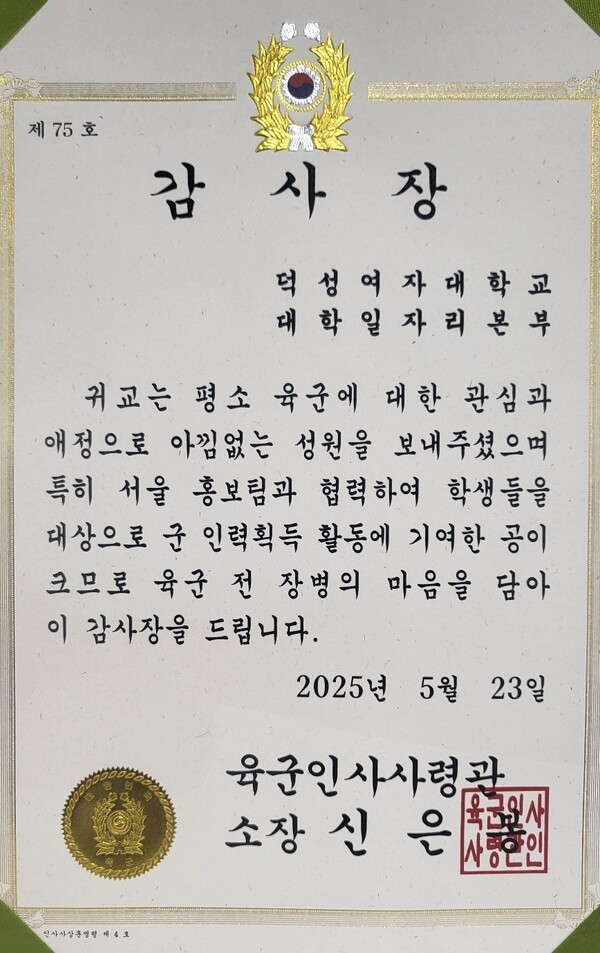 제 75 호
감 사 장
덕성여자대학교
대학일자리본부
귀교는 평소 육군에 대한 관심과
애정으로 아낌없는 성원을 보내주셨으며
특히 서울 홍보팀과 협력하여 학생들을
대상으로 군 인력획득 활동에 기여한 공이
크므로 육군 전 장병의 마음을 담아
이 감사장을 드립니다.
2025년 5월 23일
육군인사사령관
소장 신 은 봉
육군인사
사령관인
대한민국
육군
제 4 호